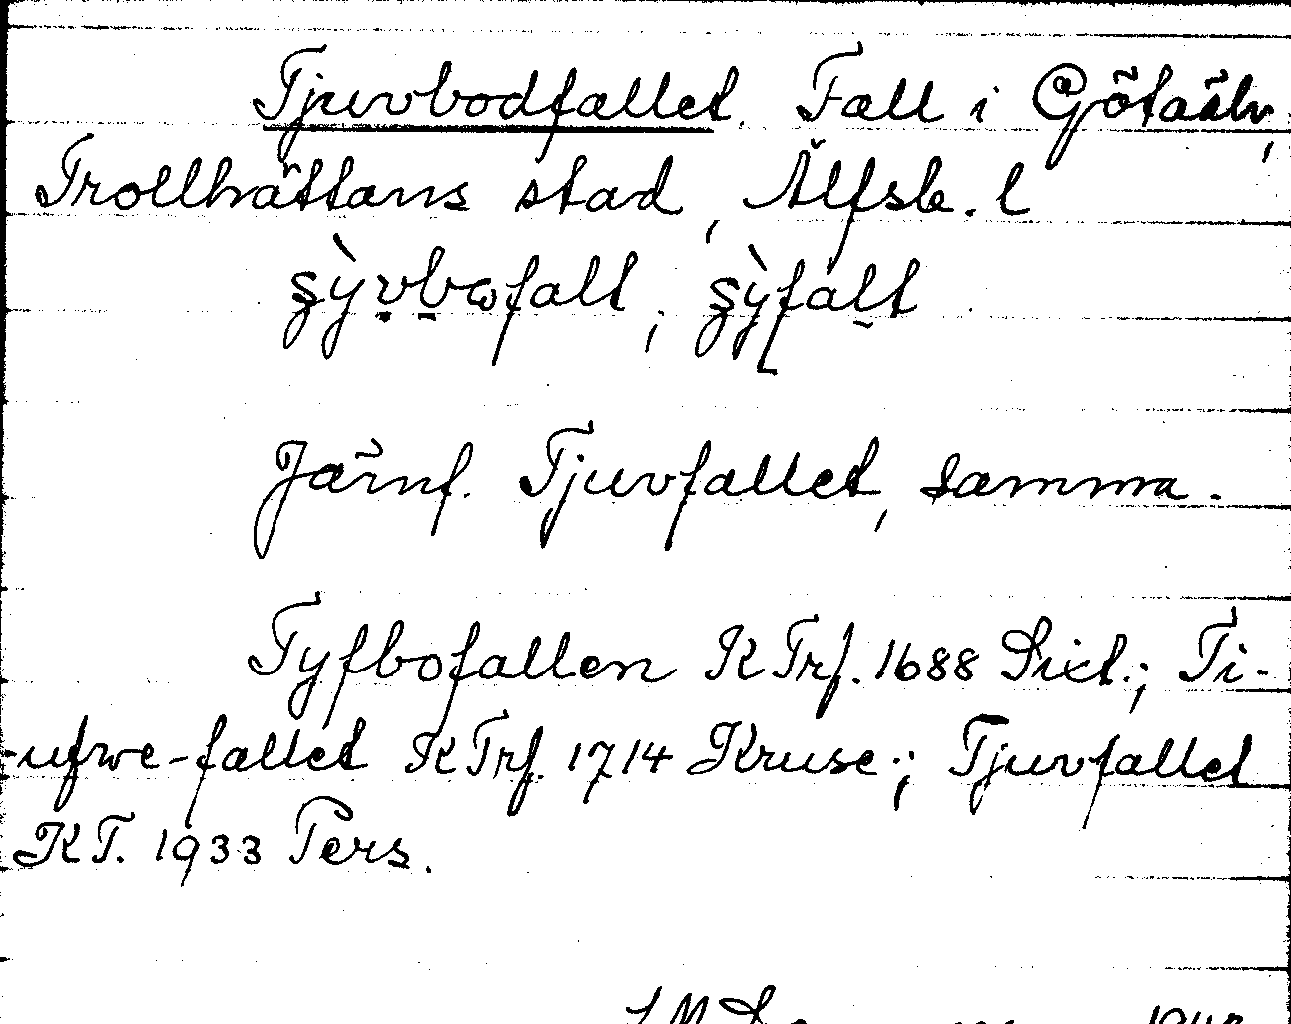 Tjuvbodfallet. Fall i Götaälv,
Trollhättans stad, Älfsb. l
Järnf. Tjuvfallet, samma.
Tyfbofallen KTrf. 1688 Sict.; Ti-
-ufwe-fallet KTrf. 1714 Kruse.; Tjuvfallet
KT. 1933 Pers.